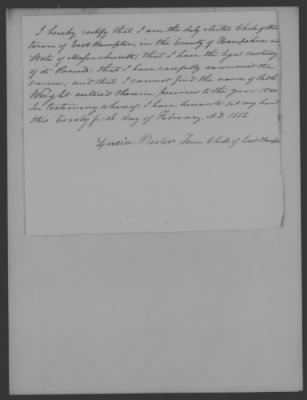 I hereby certify that I am the duly elected Clerk of the
Town of East Hampton, in the County of Hampshire and
State of Massachusetts; that I have the legal custody
of its Records; that I have carefully examined the
same, and that I cannot find the name of Seth
Wright entered therein previous to the year 1800.
In testimony whereof, I have hereunto set my hand
this twenty first day of February, A.D. 1852
Town Clerk of East Hampton